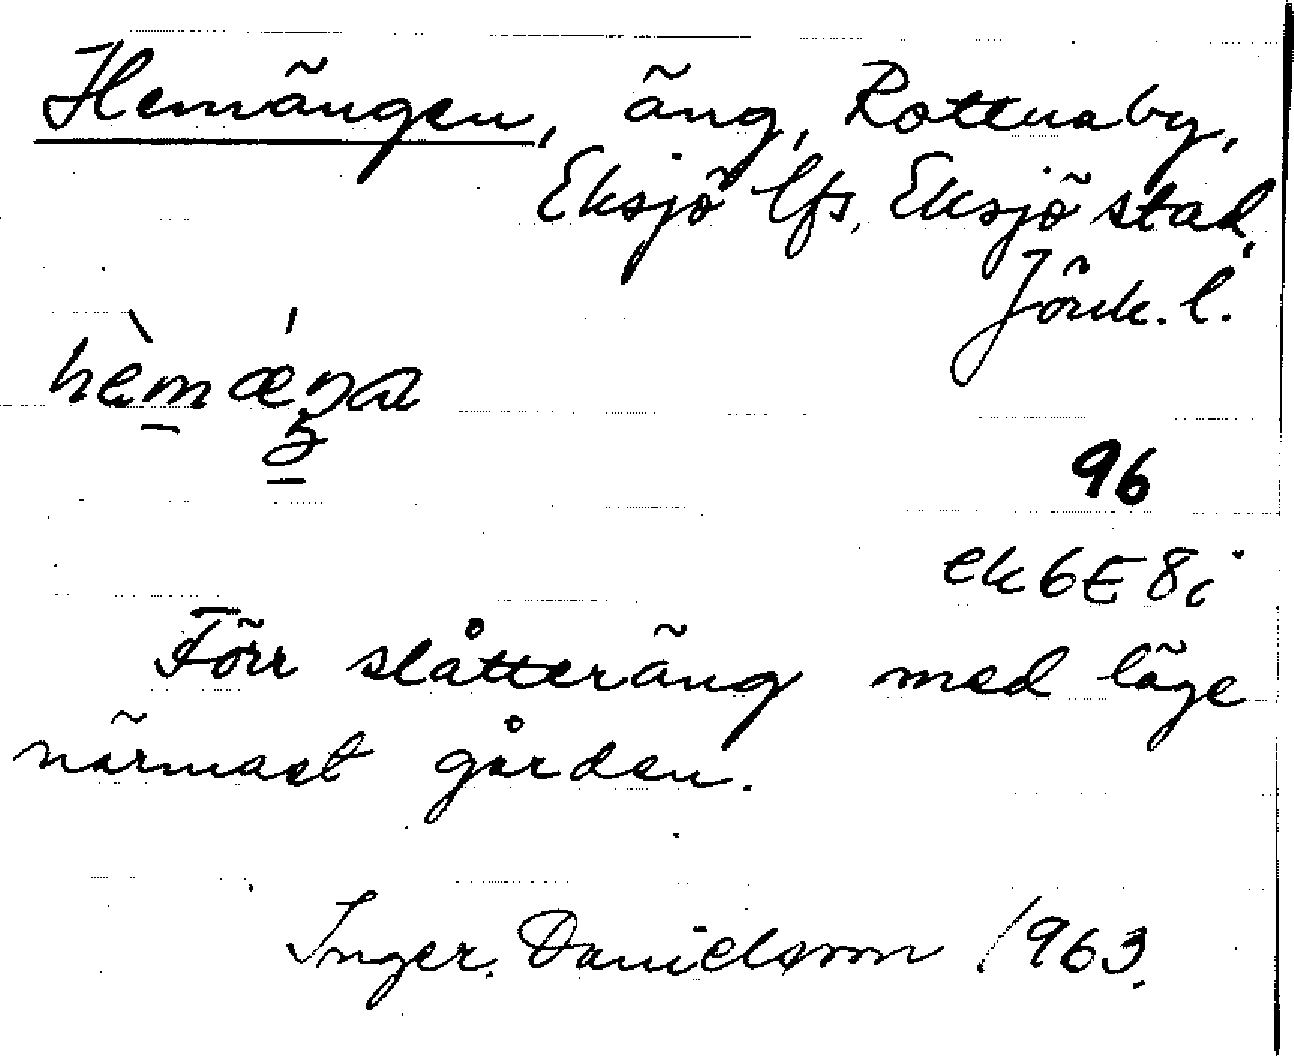 Hemängen, äng, Rottnaby,
Eksjö lfs, Eksjö stad,
Jönk. l.
hèmǽŋa
96
ek 6E 8i
Förr slåtteräng med läge
närmast gården.
Inger Danielsson 1963.